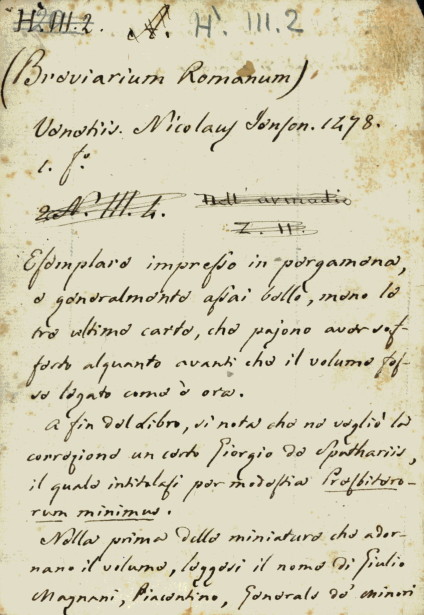 H. III. 2. N. H. III. 2
(Breviarium Romanum)
Venetiis. Nicolaus Jenson. 1478.
1. fo.
2 N. III. 4. Dell' armadio
Z. II.
Esemplare impresso in pergamena,
e generalmente assai bello, meno le
tre ultime carte, che pajono aver sof-
ferto alquanto avanti che il volume fos-
se legato come è ora.
A fin del libro, si nota che ne vegliò la
correzione un certo Giorgio de Spathariis,
il quale intitolasi per modestia Presbitero-
rum minimus.
Nella prima delle miniature che ador-
nano il volume, leggesi il nome di Giulio
Magnani, Piacentino, Generale de' minori